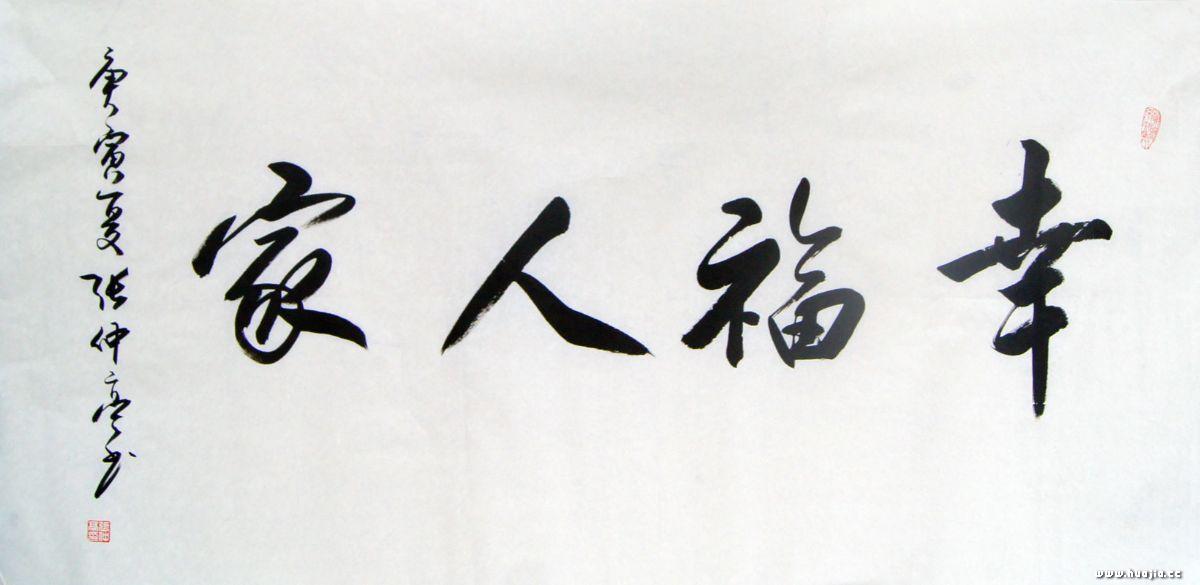 幸福人家
庚寅夏张仲亭书
www.huajia.cc